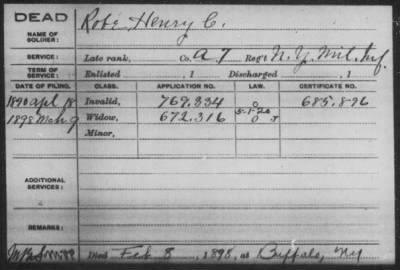 DEAD
NAME OF SOLDIER: Robe Henry C.
SERVICE: Late rank, Co. A 7 Reg't N.Y. Mil. Inf.
TERM OF SERVICE: Enlisted , 1 Discharged , 1
DATE OF FILING. CLASS. APPLICATION NO. LAW. CERTIFICATE NO.
1890 Apl 18 Invalid, 769.334 0 685.896
5-1-20
1898 Mch 9 Widow, 672.316 0 J
Minor,
ADDITIONAL SERVICES:
REMARKS:
Died Feb 8, 1898, at Buffalo, NY